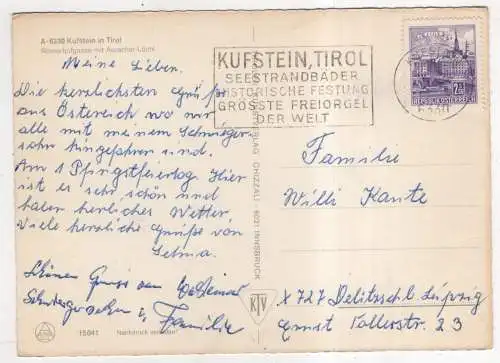 A-6330 Kufstein in Tirol
Römerhofgasse mit Auracher-Löchl
Meine Lieben.
Die herzlichsten Grüße
aus Österreich wo wir
alle mit meinem Schwieger-
sohn hingefahren sind.
Am 1 Pfingstfeiertag. Hier
ist es sehr schön und
haben herrliches Wetter.
Viele herzliche Grüße von
Selma.
Gruss von
Schwiegersohn u.
Familie
15041
Nachdruck verboten
KUFSTEIN, TIROL
SEESTRANDBÄDER
HISTORISCHE FESTUNG
GRÖSSTE FREIORGEL
DER WELT
2
REPUBLIK ÖSTERREICH
VERLAG CHIZZALI · 6021 INNSBRUCK
KTV
Familie
Willi Kante
X 727 Delitzsch b. Leipzig
Ernst Tollerstr. 23